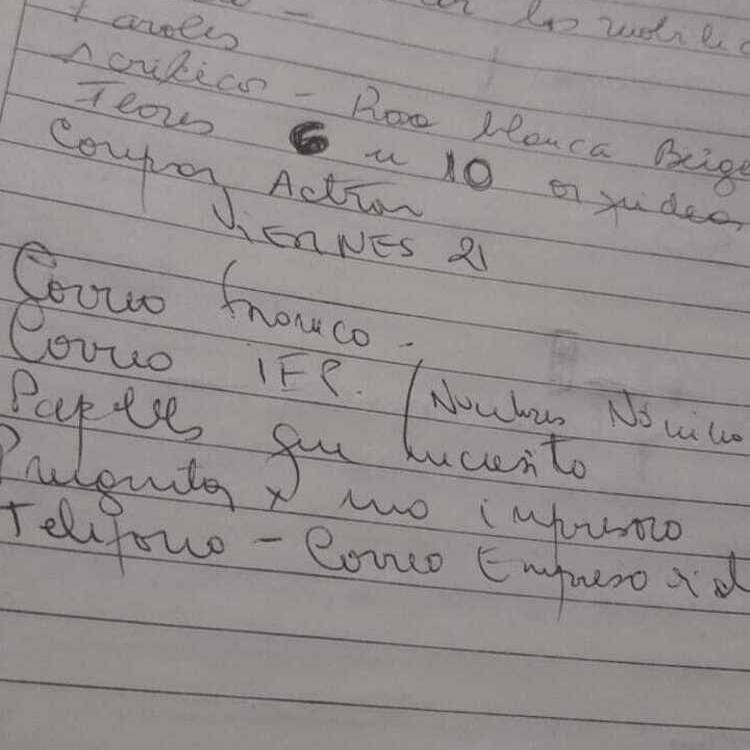 los
Faroles
Acrilicos - Rosa blanca Beige
Flores 6 u 10 orquideas
Comprar Actron
VIERNES 21
Correo
Correo IFP. / Nombres Nómina
Papeles que necesito
Preguntar x uno impreso
Telefono - Correo Empresarial